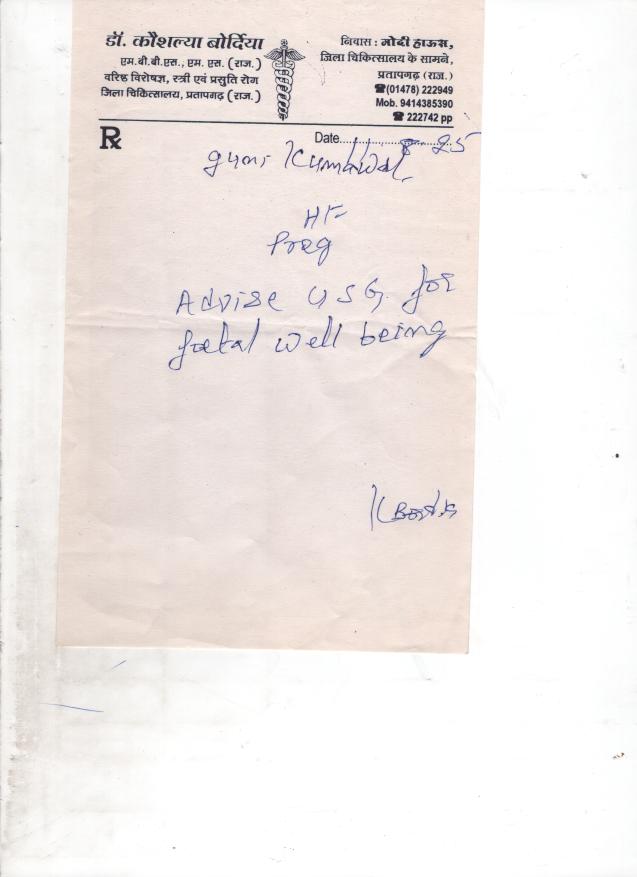 डॉ. कौशल्या बोर्दिया
एम.बी.बी.एस., एम. एस. (राज.)
वरिष्ठ विशेषज्ञ, स्त्री एवं प्रसुति रोग
जिला चिकित्सालय, प्रतापगढ़ (राज.)
निवास : मोदी हाऊस,
जिला चिकित्सालय के सामने,
प्रतापगढ़ (राज.)
☎(01478) 222949
Mob. 9414385390
☎ 222742 pp
Rx
Date 8 25
Kumawat
Preg
Advise USG for
foetal well being